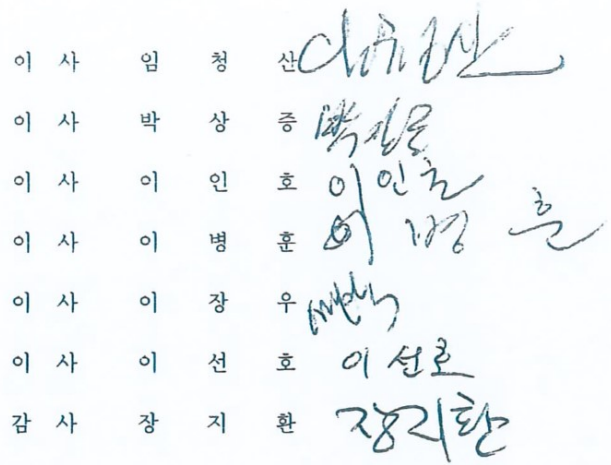 이 사 임 청 산
이 사 박 상 증 박상증
이 사 이 인 호 이인호
이 사 이 병 훈 이 병 훈
이 사 이 장 우
이 사 이 선 호 이선호
감 사 장 지 환 장지환